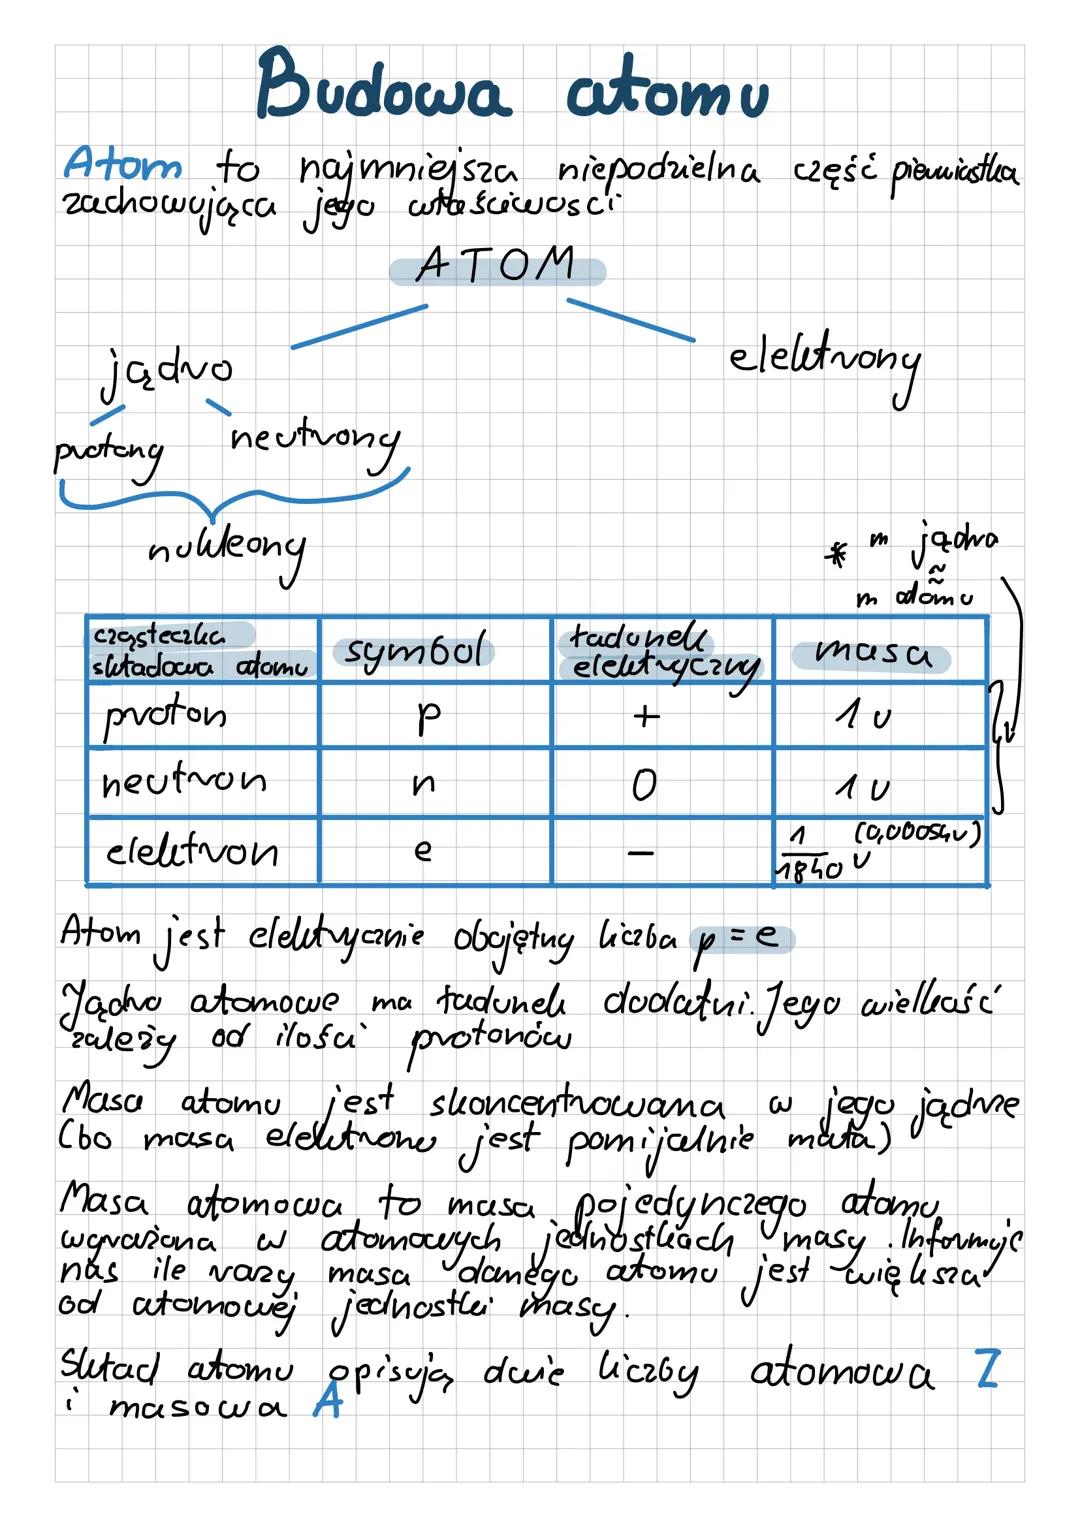 Budowa atomu
Atom to najmniejsza niepodzielna część pierwiastka
zachowująca jego właściwości
ATOM
jądro
elektrony
protony
neutrony
nukleony
* m jądra
≈
m atomu
cząsteczka składowa atomu | symbol | ładunek elektryczny | masa
proton | p | + | 1 u
neutron | n | 0 | 1 u
elektron | e | − | 1/1840 u (0,00054u)
Atom jest elektrycznie obojętny liczba p = e
Jądro atomowe ma ładunek dodatni. Jego wielkość
zależy od ilości protonów
Masa atomu jest skoncentrowana w jego jądrze
(bo masa elektronu jest pomijalnie mała)
Masa atomowa to masa pojedynczego atomu
wyrażona w atomowych jednostkach masy. Informuje
nas ile razy masa danego atomu jest większa
od atomowej jednostki masy.
Skład atomu opisują dwie liczby atomowa Z
i masowa A